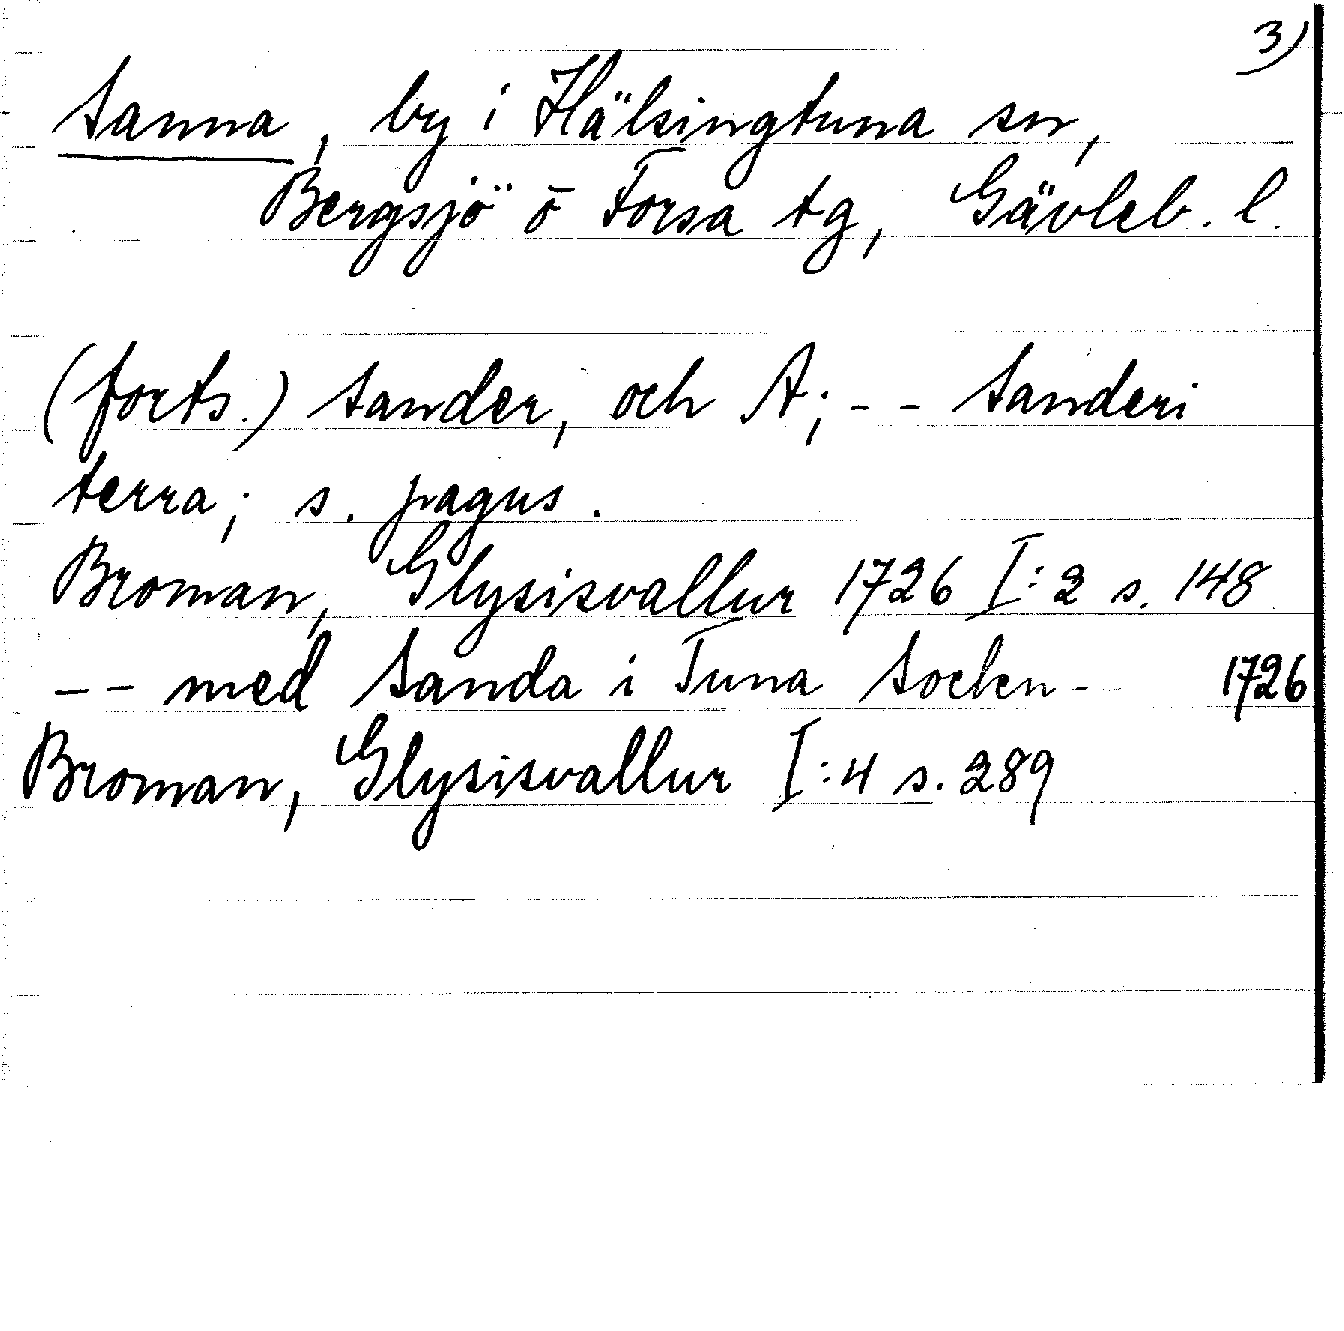 3)
Sanna, by i Hälsingtuna sn,
Bergsjö o Forsa tg, Gävleb. l.
(forts.) Sander, och A; - - Sanderi
terra; s. pagus.
Broman, Glysisvallur 1726 I:2 s. 148
- - med Sanda i Tuna Socken - 1726
Broman, Glysisvallur I:4 s. 289